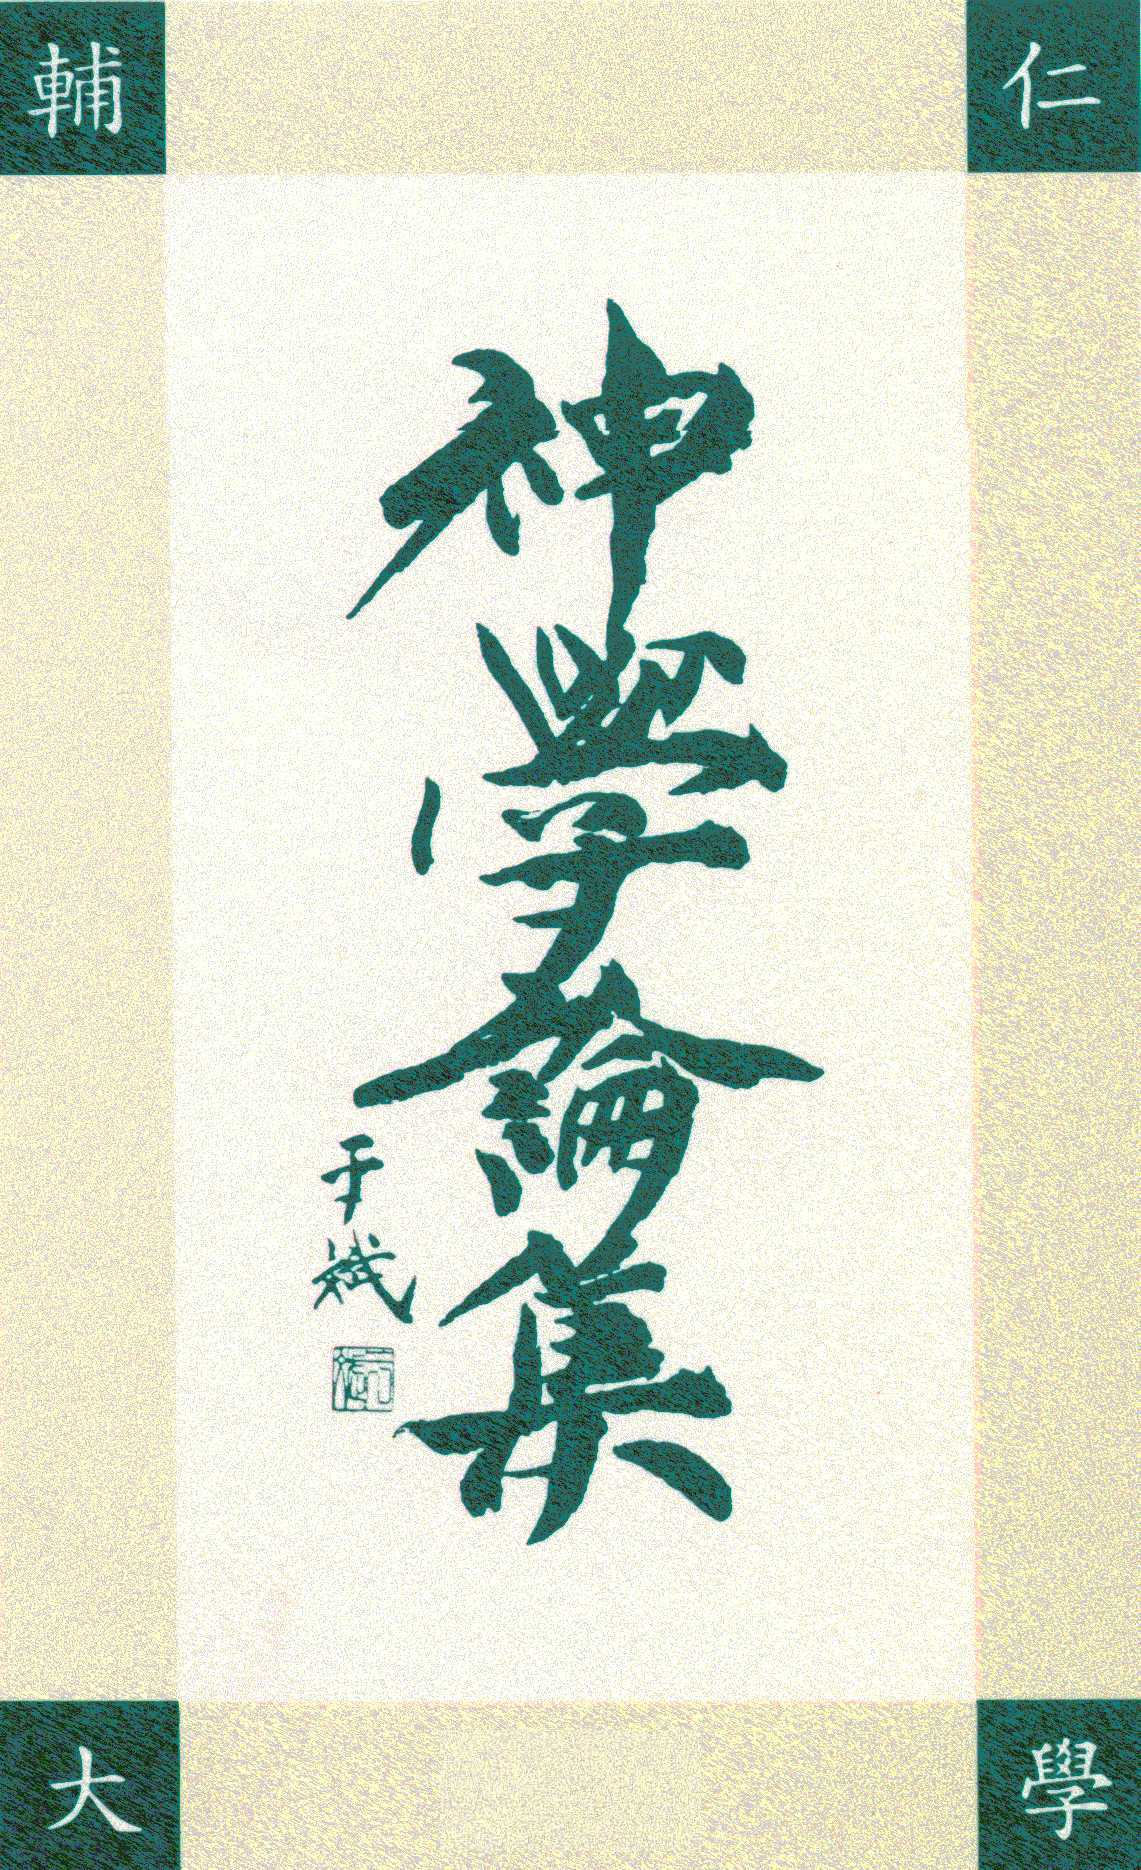 輔仁
神學論集
于斌
大學